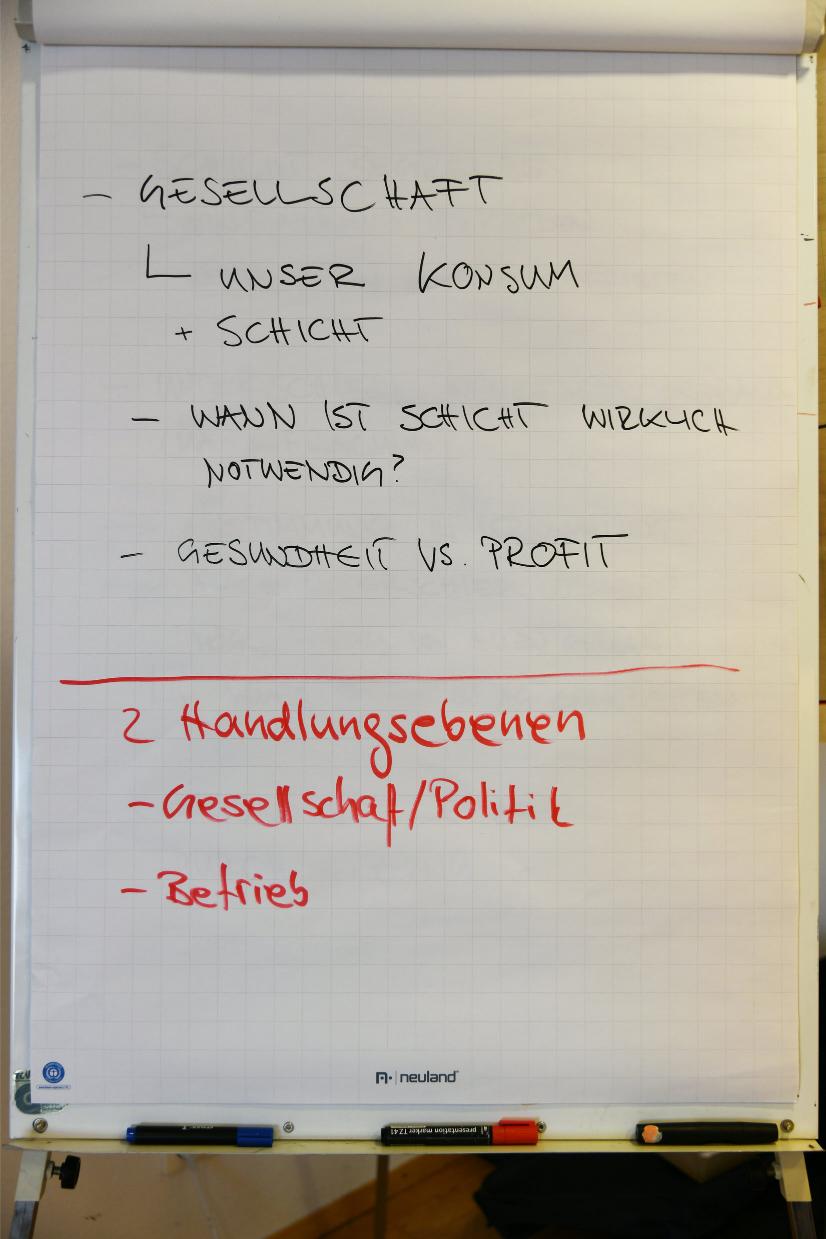 - GESELLSCHAFT
UNSER KONSUM
+ SCHICHT
- WANN IST SCHICHT WIRKLICH
NOTWENDIG?
- GESUNDHEIT VS. PROFIT
2 Handlungsebenen
- Gesellschaft/Politik
- Betrieb
neuland
presentation marker TZ 41